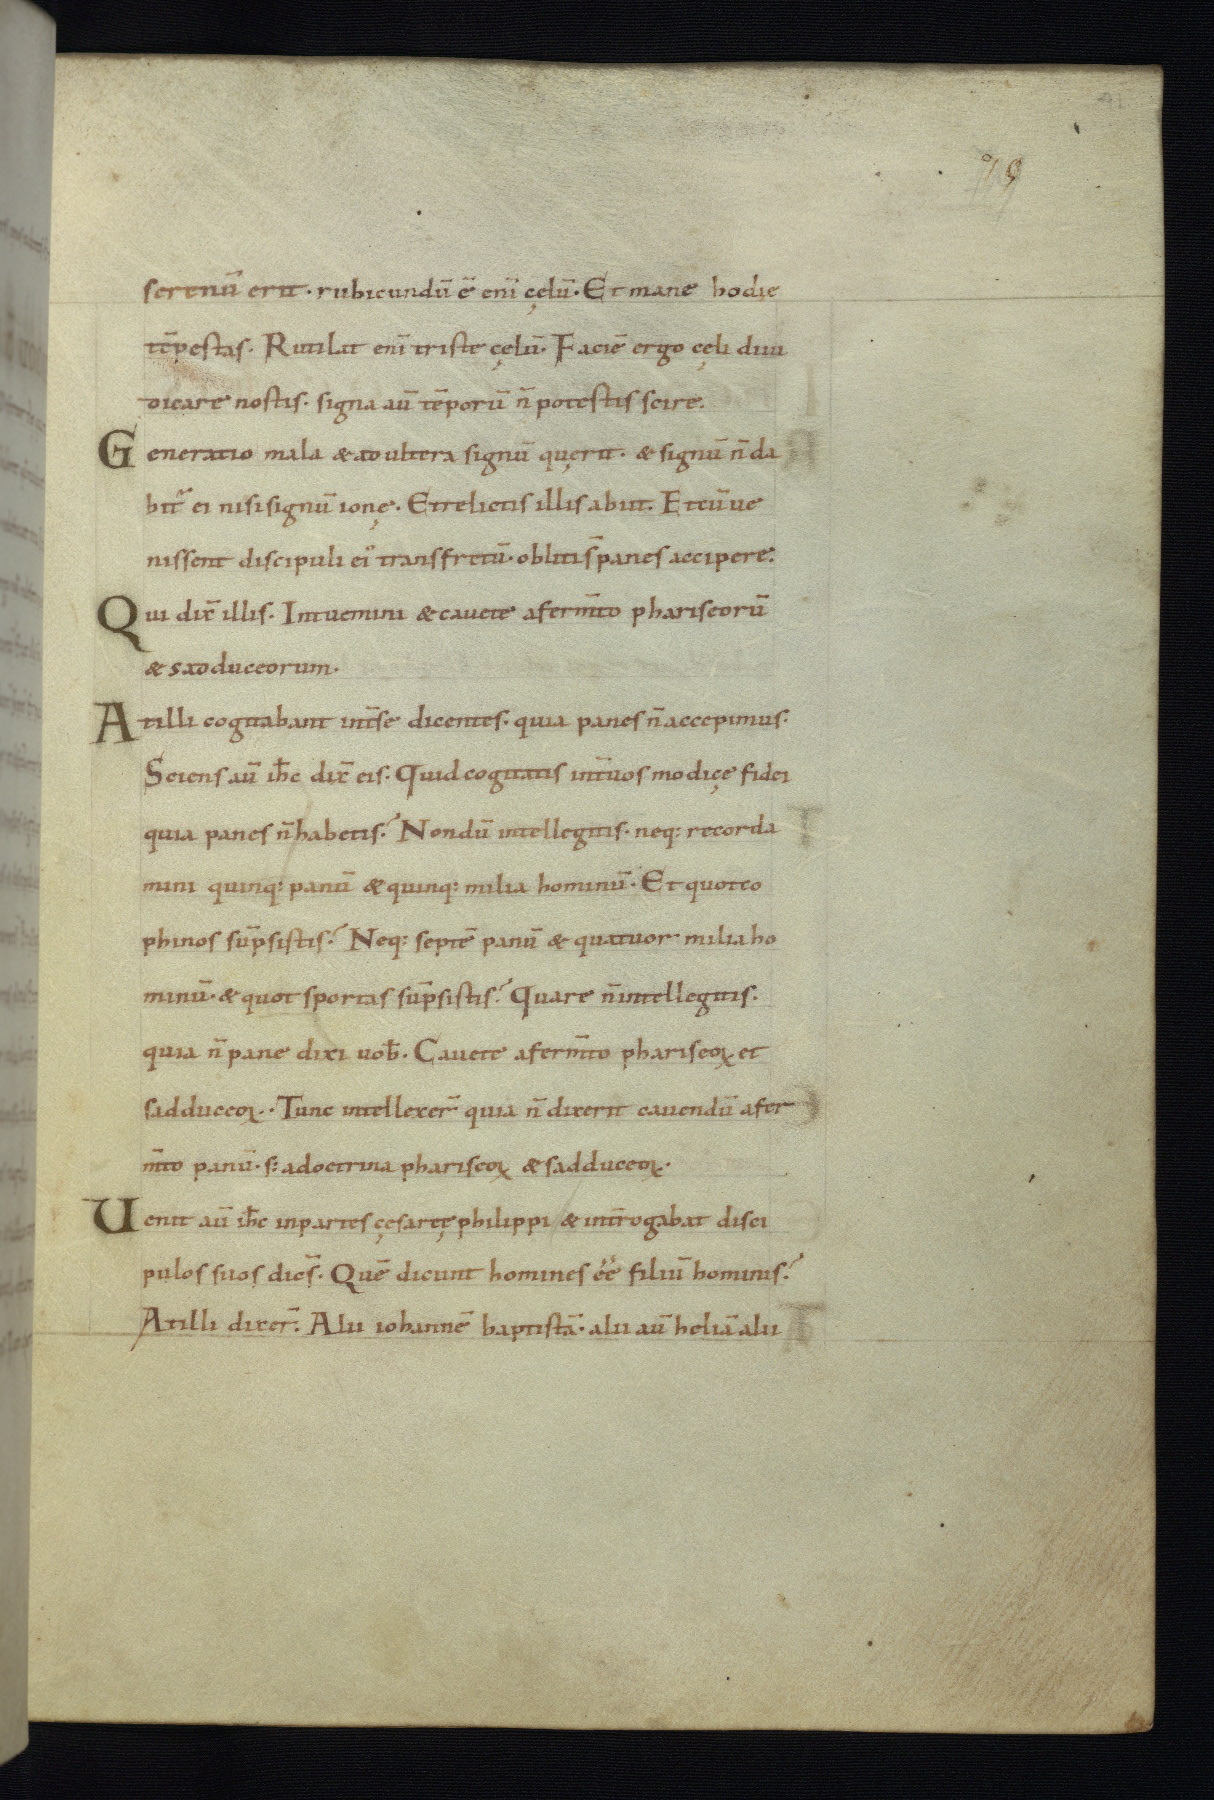 serenū erit · rubicundū ē eni̅ cęlū · Et mane hodie
tēpestas · Rutilat eni̅ triste cęlū · Faciē ergo cęli diiu
dicare nostis · signa au̅ tēporū n̅ potestis scire.
Generatio mala & adultera signū quęrit · & signū n̅ da
bit᷑ ei nisi signū ionę · Et relictis illis abiit · Et cū ue
nissent discipuli ei᷒ trans fretū · obliti s̅ panes accipere.
Qui dix̅ illis · Intuemini & cauete a ferm̅to phariseorū
& sadduceorum ·
At illi cogitabant int̅ se dicentes · quia panes n̅ accepimus ·
Sciens au̅ ih̅c dix̅ eis · Quid cogitatis int̅ uos modicę fidei
quia panes n̅ habetis? Nondū intellegitis · neq: recorda
mini quinq: panū & quinq: milia hominū · Et quot co
phinos sūpsistis? Neq: septē panū & quatuor milia ho
minū · & quot sportas sūpsistis? Quare n̅ intellegitis ·
quia n̅ pane dixi uob̅ · Cauete a ferm̅to phariseoꝝ et
sadduceoꝝ · Tunc intellexer̅ quia n̅ dixerit cauendū a fer
m̅to panū · s: a doctrina phariseoꝝ & sadduceoꝝ ·
Uenit au̅ ih̅c in partes cęsaręę philippi & int̅rogabat disci
pulos suos dice̅s · Quē dicunt homines ee̅ filiū hominis?
At illi dixer̅ · Alii iohannē baptistā · alii au̅ heliā alii